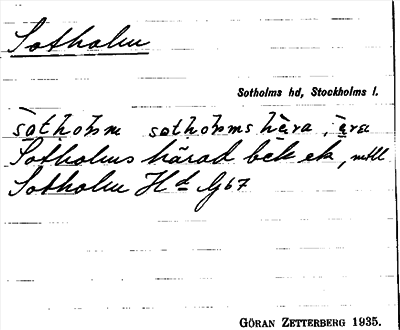 Sotholm
Sotholms hd, Stockholms l.
sot̨hoɫsm sot̨hoɫsms hæ̀ra, -æ̀ra
Sotholms härad bek ek, mtll
Sotholm Hd G67
GÖRAN ZETTERBERG 1935.